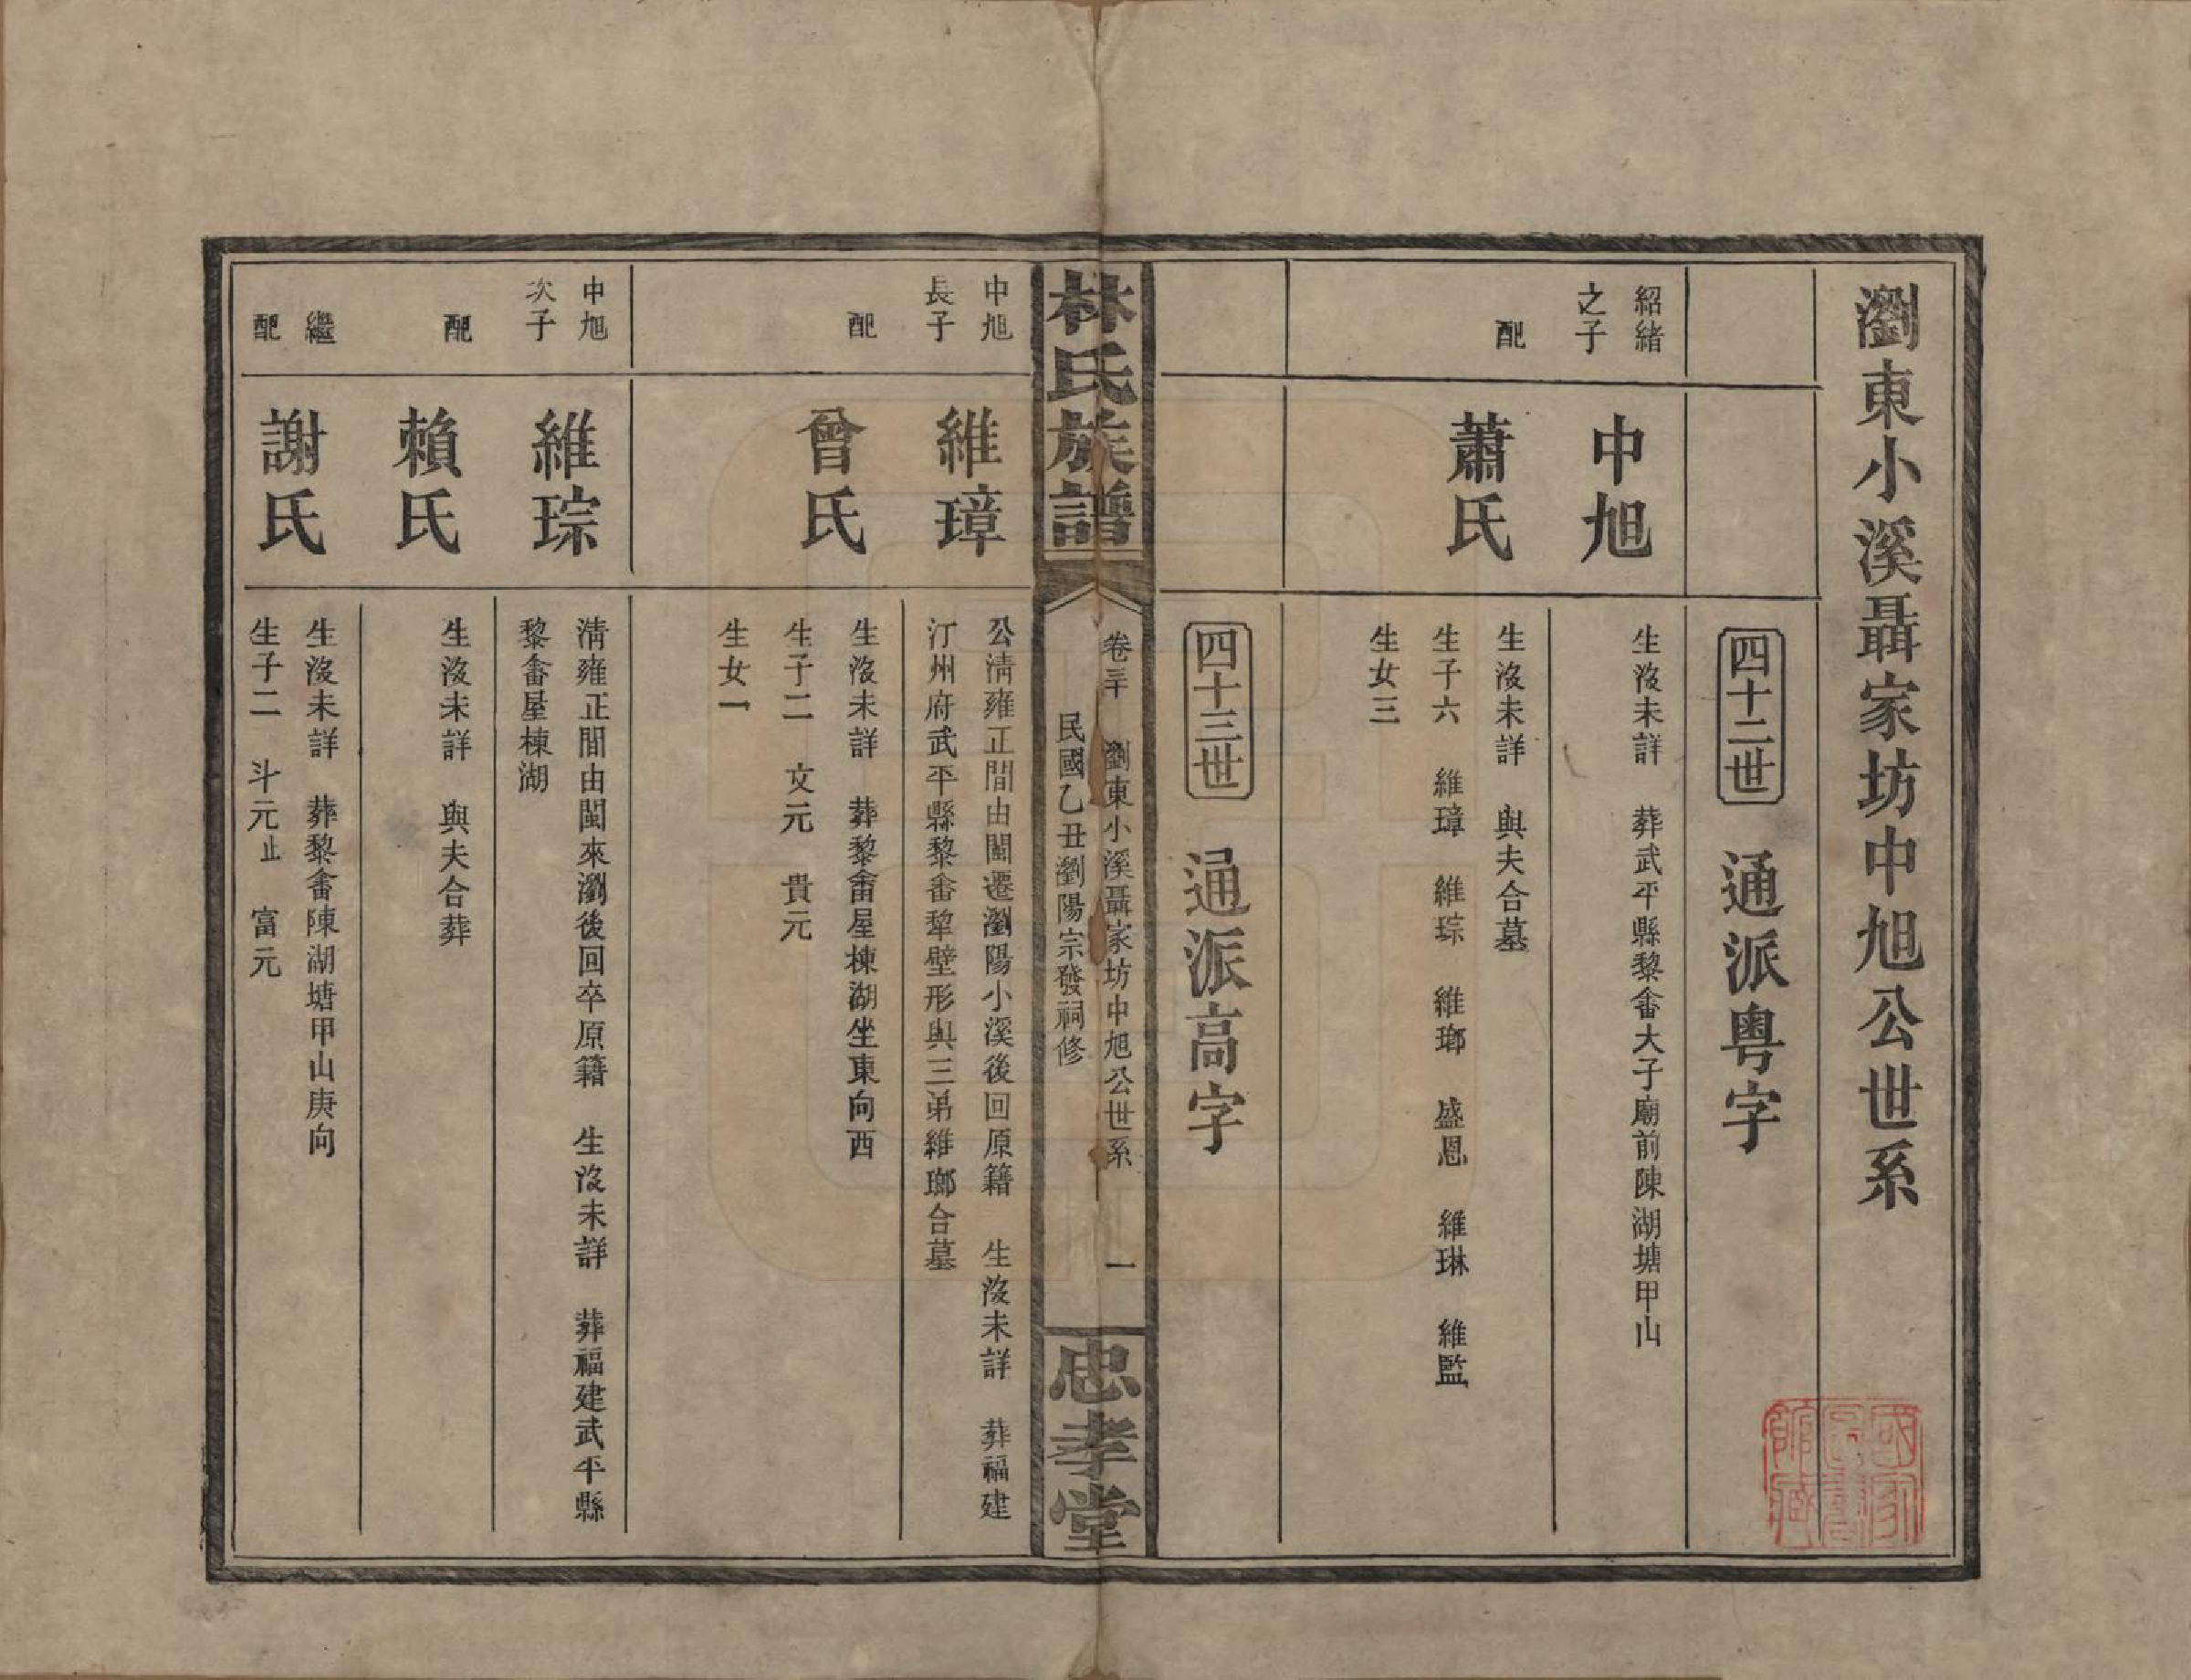 瀏東小溪聶家坊中旭公世系
四十二世 通派粤字
紹緒
之子
中旭
生沒未詳 葬武平縣黎畬大子廟前陳湖塘甲山
配
蕭氏
生沒未詳 與夫合墓
生子六 維璋 維琮 維瑯 盛恩 維琳 維監
生女三
四十三世 通派高字
林氏族譜
卷三十 瀏東小溪聶家坊中旭公世系 一
民國乙丑瀏陽宗發祠修
忠孝堂
中旭
長子
維璋
公清雍正間由閩遷瀏陽小溪後回原籍 生沒未詳 葬福建
汀州府武平縣黎畬犂壁形與三弟維瑯合墓
配
曾氏
生沒未詳 葬黎畬屋棟湖坐東向西
生子二 文元 貴元
生女一
中旭
次子
維琮
清雍正間由閩來瀏後回卒原籍 生沒未詳 葬福建武平縣
黎畬屋棟湖
配
賴氏
生沒未詳 與夫合葬
繼
配
謝氏
生沒未詳 葬黎畬陳湖塘甲山庚向
生子二 斗元止 富元